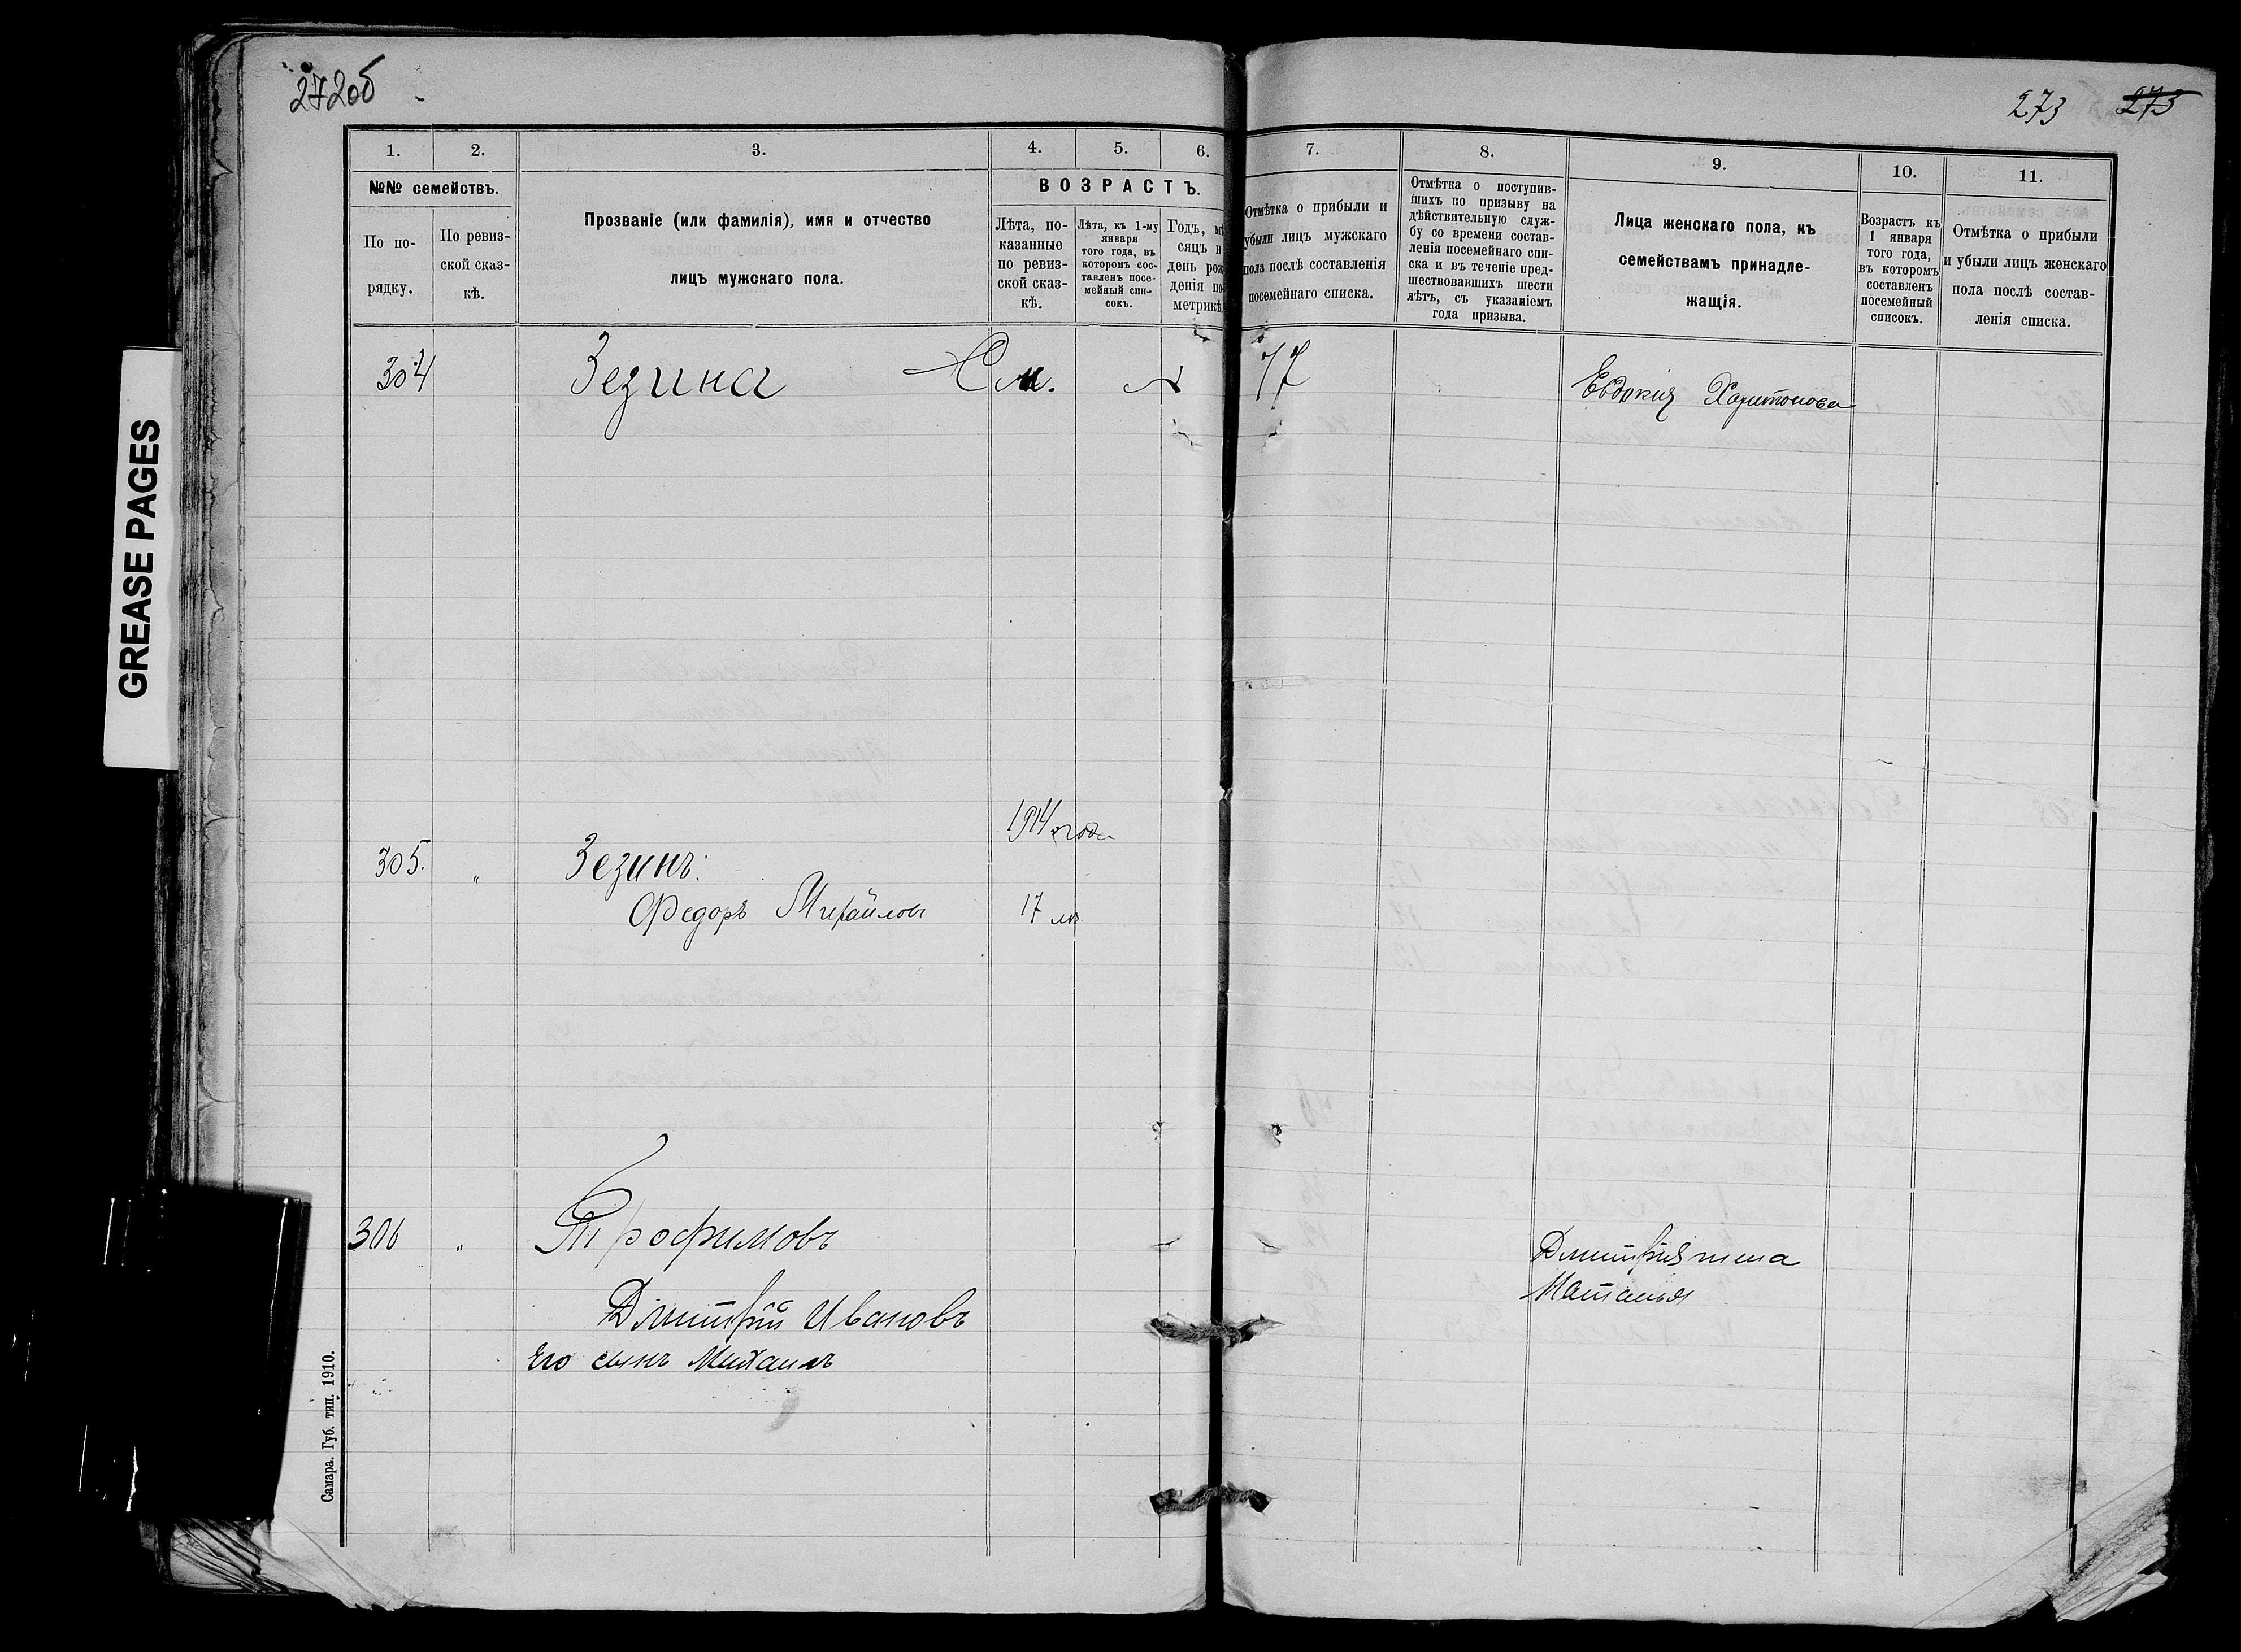 272об
273 273
1. 2. 3. 4. 5. 6. 7. 8. 9. 10. 11.
№№ семействъ.
По по-
рядку.
По ревиз-
ской сказ-
кѣ.
Прозваніе (или фамилія), имя и отчество
лицъ мужскаго пола.
ВОЗРАСТЪ.
Лѣта, по-
казанные
по ревиз-
ской сказ-
кѣ.
Лѣта, къ 1-му
января
того года, въ
которомъ сос-
тавленъ посе-
мейный спи-
сокъ.
Годъ, мѣ
сяцъ и
день рож
денія по
метрикѣ.
Отмѣтка о прибыли и
убыли лицъ мужскаго
пола послѣ составленія
посемейнаго списка.
Отмѣтка о поступив-
шихъ по призыву на
дѣйствительную служ-
бу со времени состав-
ленія посемейнаго спи-
ска и въ теченіе пред-
шествовавшихъ шести
лѣтъ, съ указаніемъ
года призыва.
Лица женскаго пола, къ
семействамъ принадле-
жащія.
Возрастъ къ
1 января
того года,
въ которомъ
составленъ
посемейный
списокъ.
Отмѣтка о прибыли
и убыли лицъ женскаго
пола послѣ состав-
ленія списка.
304 Зезина См. № 77 Евдокия Харитонова
1914 года
305. „ Зезинъ.
Федоръ Михайловъ 17 лѣ
306 „ Трофимовъ
Дмитрія жена
Наталья
Дмитрій Ивановъ
Его сынъ Михаилъ
Самара. Губ. тип. 1910.
GREASE PAGES